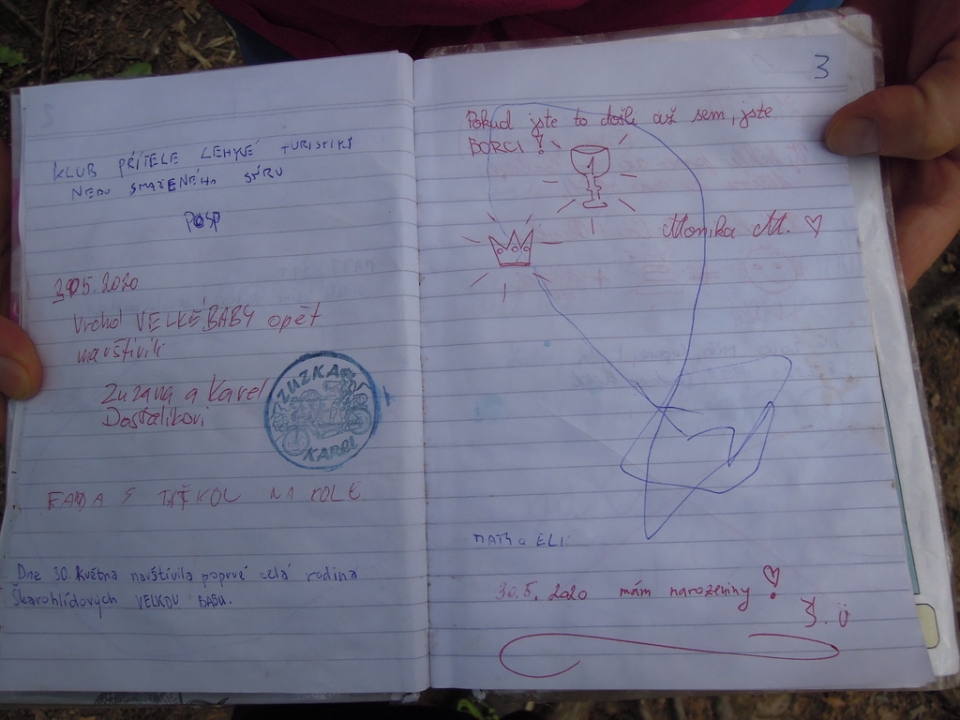 KLUB PŘÍTELE LEHKÉ TURISTIKY
NEBO SMAŽENÉHO SÝRU
30.5.2020
Vrchol VELKÉ BABY opět
navštívili
Zuzana a Karel
Dostálíkovi
ZUZKA
KAREL
NA KOLE
Dne 30. května navštívila poprvé celá rodina
Škarohlídových VELKOU BABU.
3
Pokud jste to došli až sem, jste
BORCI!
1
Monika M. ♡
ELI
30.5.2020 mám narozeniny